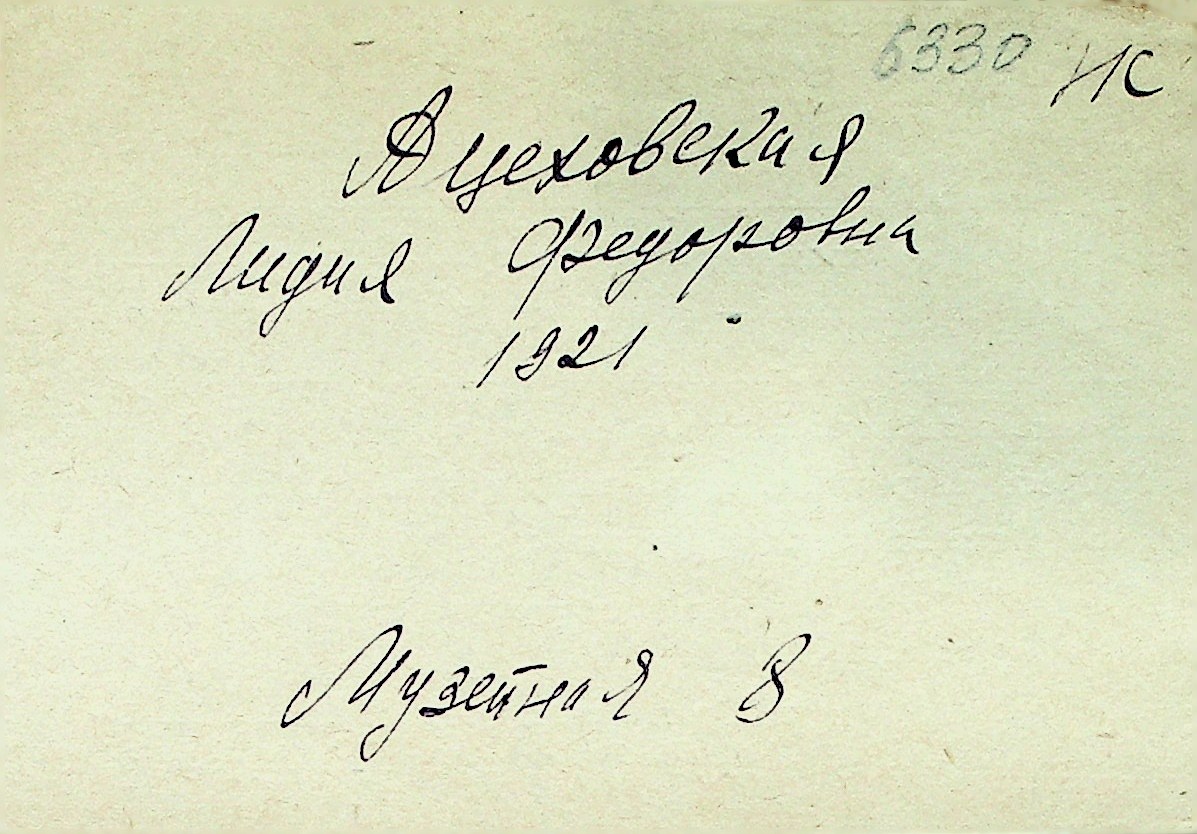 6330 НС
Яцеховская
Лидия Федоровна
1921
Музейная 8